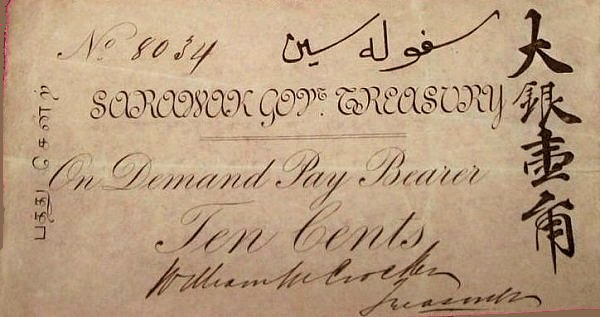 No 8034
سڤوله سين
SARAWAK GOVT. TREASURY
On Demand Pay Bearer
Ten Cents
William M Crocker
Treasurer
大銀壹角
பத்து சென்ற்